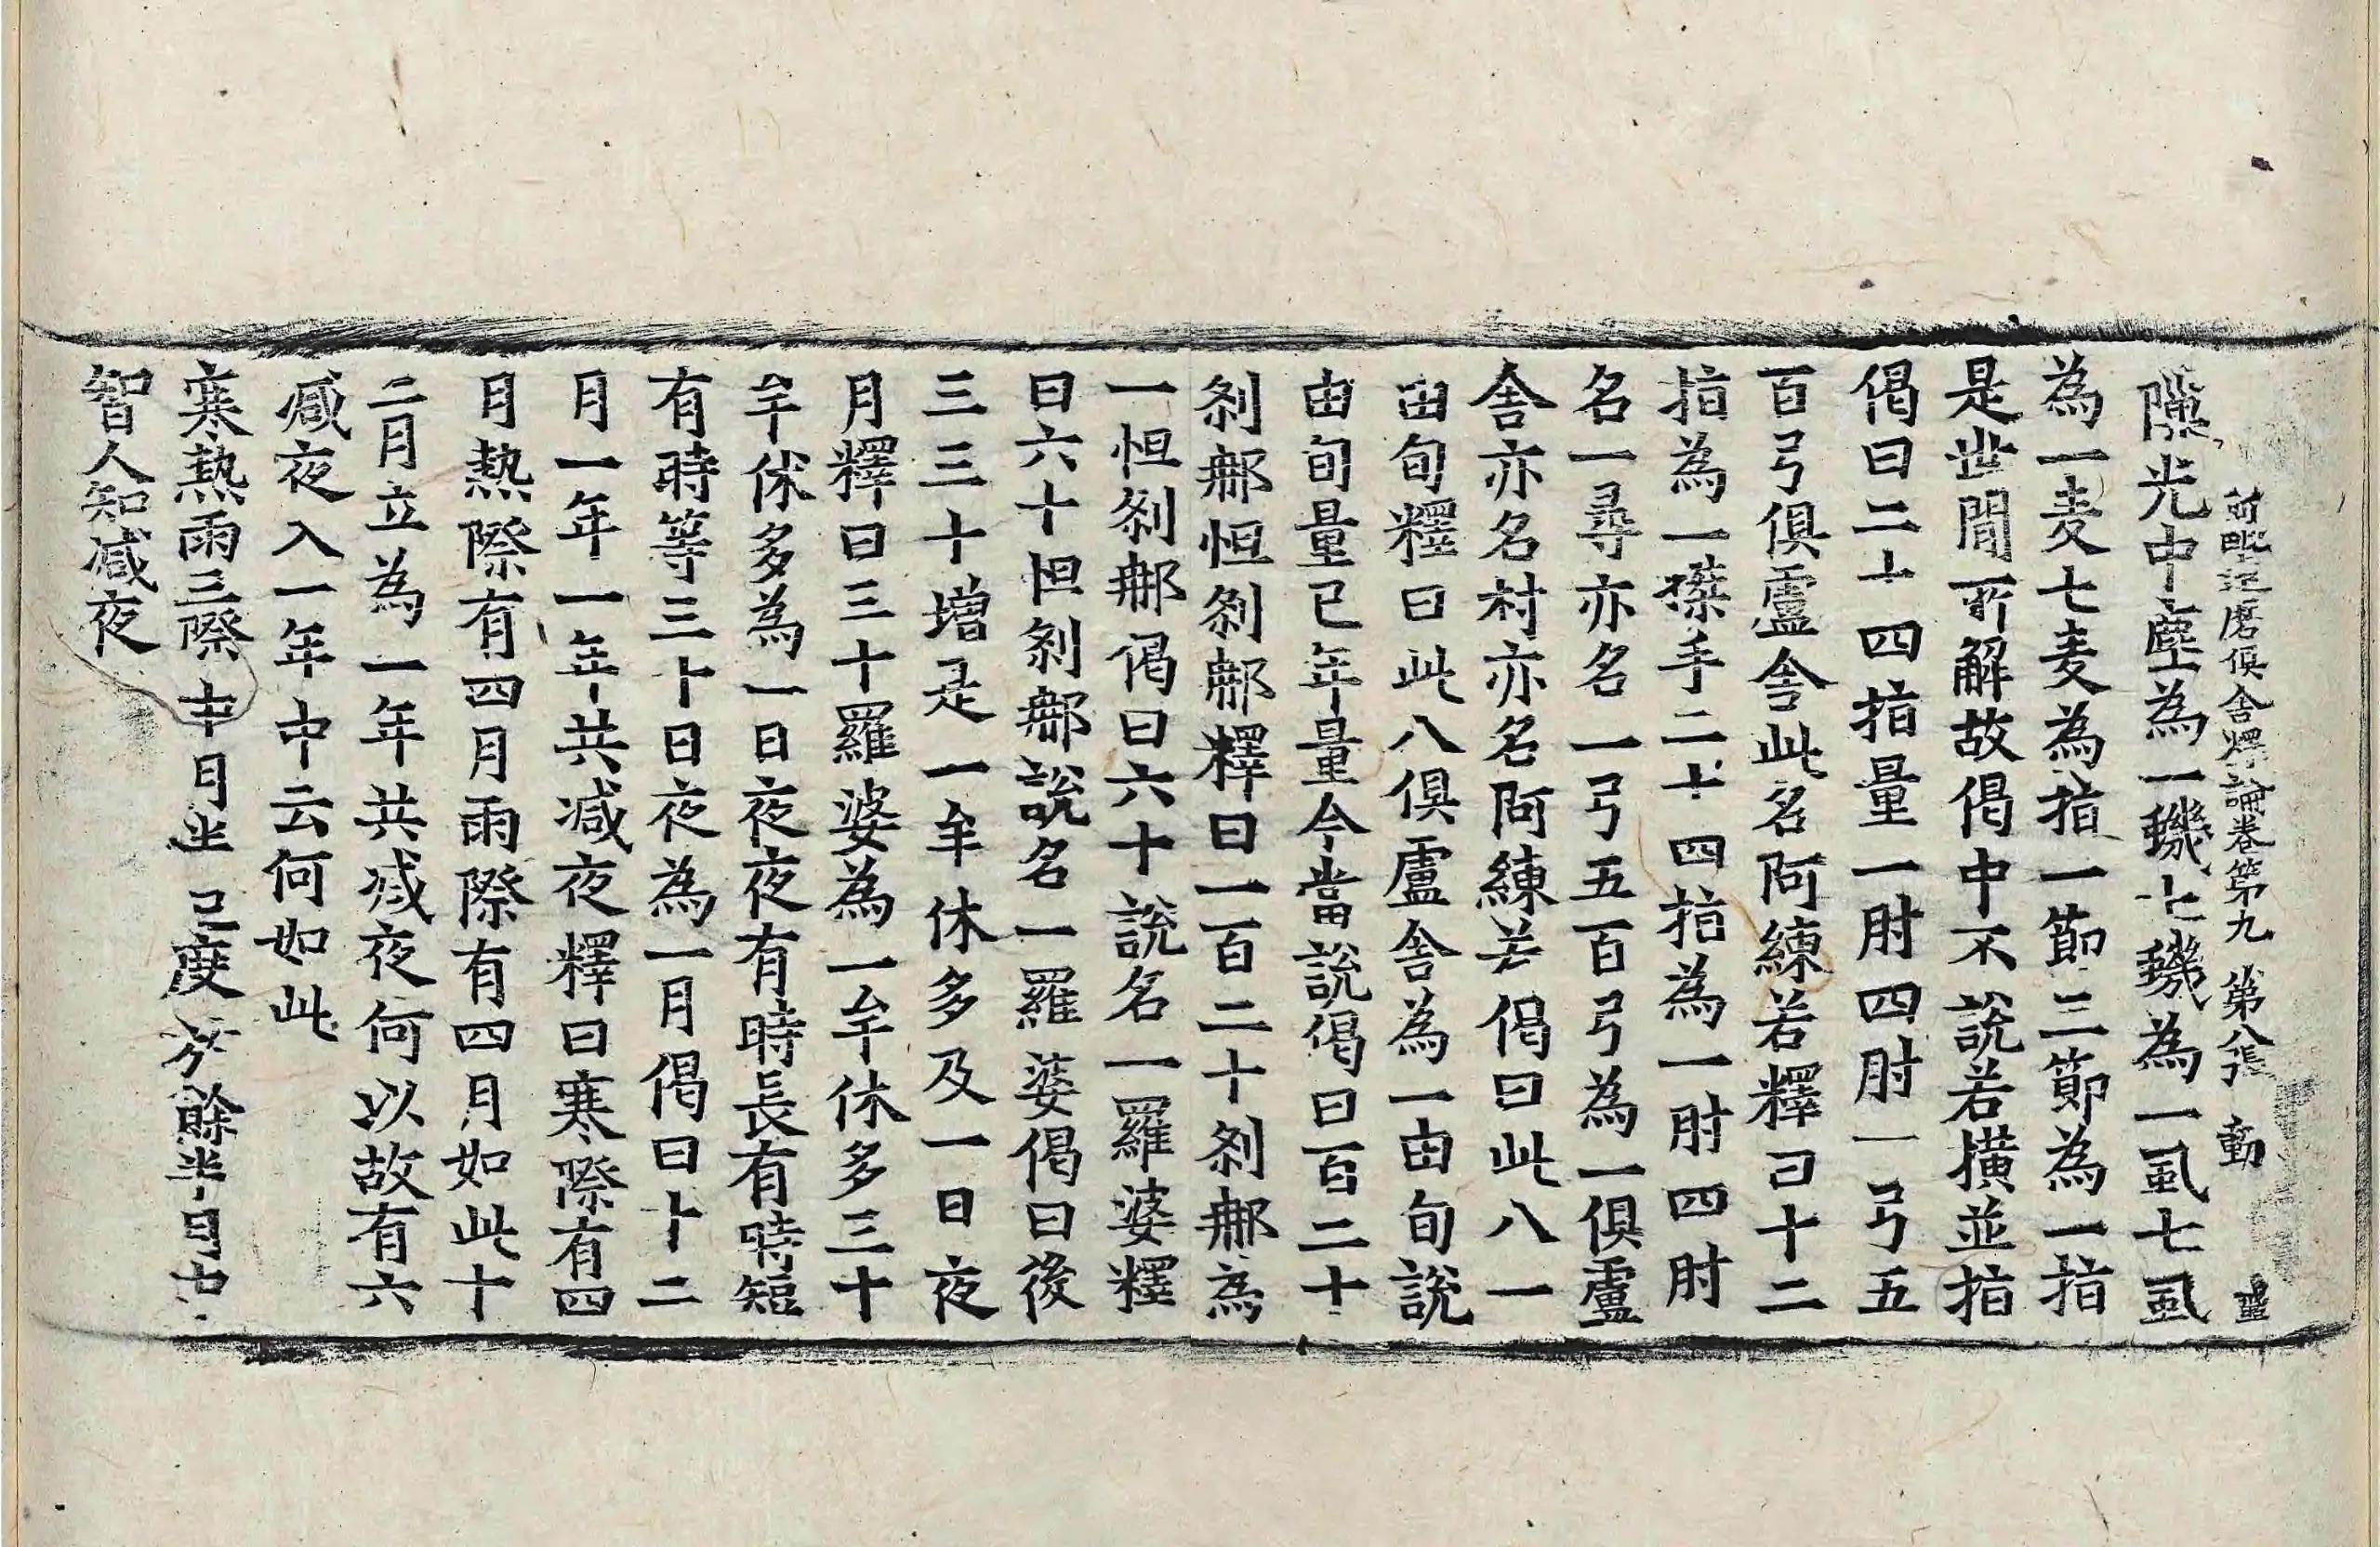 阿毗達磨俱舍釋論卷第九 第八張 動
隙光中塵為一蟣七蟣為一虱七虱
為一麦七麦為指一節三節為一指
是世間所解故偈中不說若橫並指
偈曰二十四指量一肘四肘一弓五
百弓俱盧舍此名阿練若釋曰十二
指為一磔手二十四指為一肘四肘
名一尋亦名一弓五百弓為一俱盧
舍亦名村亦名阿練若偈曰此八一
由旬釋曰此八俱盧舍為一由旬說
由旬量已年量今當說偈曰百二十
剎那怛剎那釋曰一百二十剎那為
一怛剎那偈曰六十說名一羅婆釋
曰六十怛剎那說名一羅婆偈曰後
三三十增是一牟休多及一日夜
月釋曰三十羅婆為一牟休多三十
牟休多為一日夜夜有時長有時短
有時等三十日夜為一月偈曰十二
月一年一年共減夜釋曰寒際有四
月熱際有四月雨際有四月如此十
二月立為一年共減夜何以故有六
減夜入一年中云何如此
寒熱雨三際 中月半已度 於餘半月中
智人知減夜